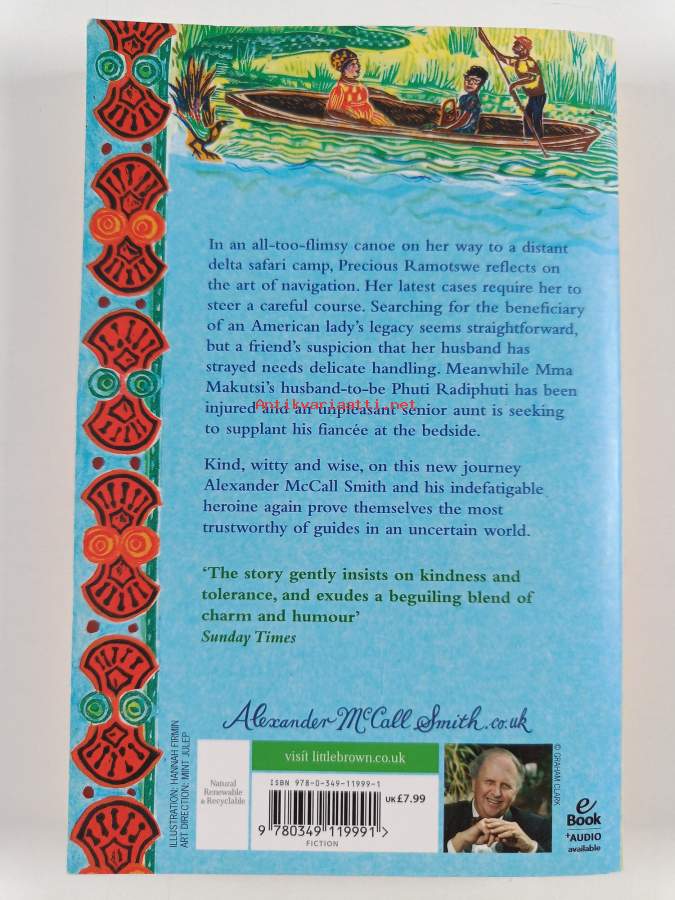 In an all-too-flimsy canoe on her way to a distant
delta safari camp, Precious Ramotswe reflects on
the art of navigation. Her latest cases require her to
steer a careful course. Searching for the beneficiary
of an American lady's legacy seems straightforward,
but a friend's suspicion that her husband has
strayed needs delicate handling. Meanwhile Mma
Makutsi's husband-to-be Phuti Radiphuti has been
injured and an unpleasant senior aunt is seeking
Antikvariaatti.net
to supplant his fiancée at the bedside.
Kind, witty and wise, on this new journey
Alexander McCall Smith and his indefatigable
heroine again prove themselves the most
trustworthy of guides in an uncertain world.
‘The story gently insists on kindness and
tolerance, and exudes a beguiling blend of
charm and humour’
Sunday Times
Alexander McCall Smith.co.uk
ILLUSTRATION: HANNAH FIRMIN
ART DIRECTION: MINT JULEP
Natural
Renewable
& Recyclable
visit littlebrown.co.uk
ISBN 978-0-349-11999-1
9 780349 119991 >
FICTION
UK £7.99
© GRAHAM CLARK
eBook
+AUDIO
available